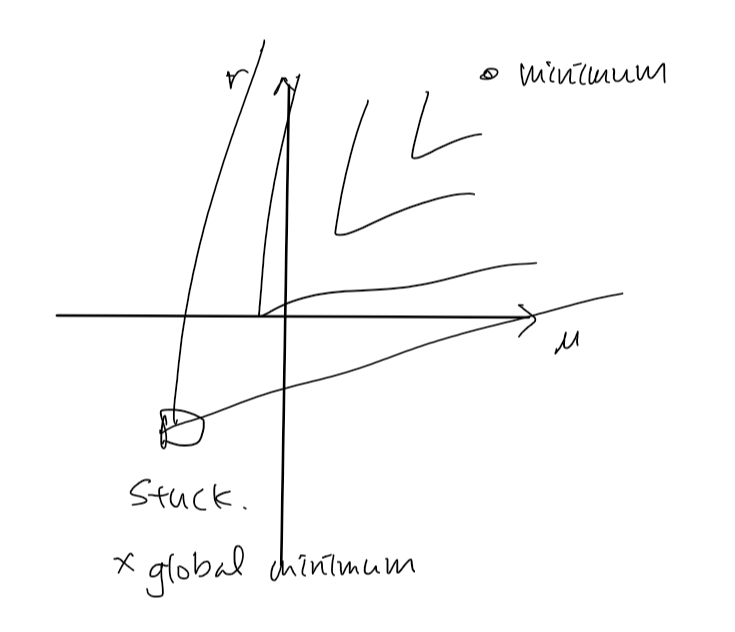 r
∘ minimum
μ
Stuck.
× global minimum